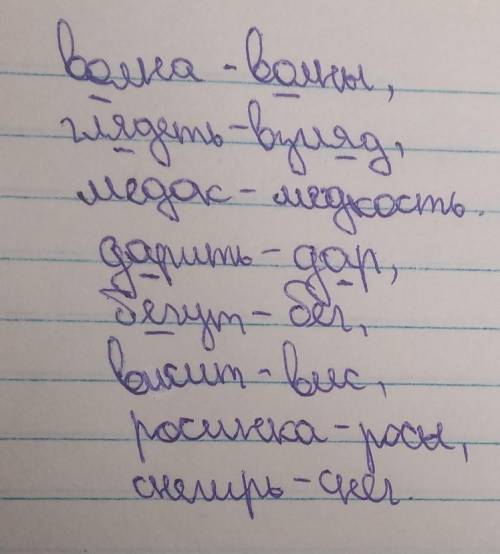 волна - волны,
глядеть - взгляд,
медак - медкость.
дарить - дар,
бегут - бег,
висит - вис,
росинка - росы,
снегирь - снег.